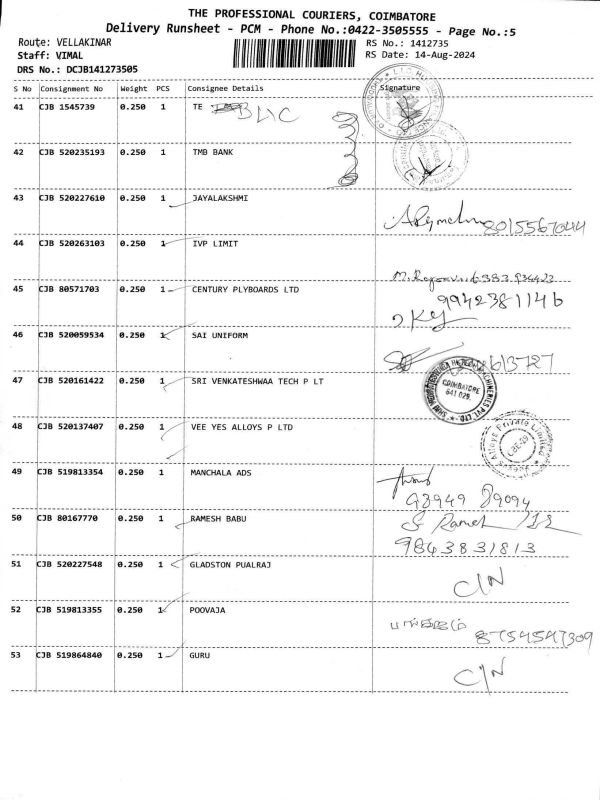 THE PROFESSIONAL COURIERS, COIMBATORE
Delivery Runsheet - PCM - Phone No.:0422-3505555 - Page No.:5
Route: VELLAKINAR
RS No.: 1412735
Staff: VIMAL
RS Date: 14-Aug-2024
DRS No.: DCJB141273505
S No Consignment No Weight PCS Consignee Details Signature
41 CJB 1545739 0.250 1 TE LIC
42 CJB 520235193 0.250 1 TMB BANK
43 CJB 520227610 0.250 1 JAYALAKSHMI
8015567044
44 CJB 520263103 0.250 1 IVP LIMIT
45 CJB 80571703 0.250 1 CENTURY PLYBOARDS LTD
9942381146
46 CJB 520059534 0.250 1 SAI UNIFORM
613727
47 CJB 520161422 0.250 1 SRI VENKATESHWAA TECH P LT
COIMBATORE
641 029.
48 CJB 520137407 0.250 1 VEE YES ALLOYS P LTD
Alloys Private Limited
49 CJB 519813354 0.250 1 MANCHALA ADS
98949 89094
50 CJB 80167770 0.250 1 RAMESH BABU
9843831813
51 CJB 520227548 0.250 1 GLADSTON PUALRAJ
C/N
52 CJB 519813355 0.250 1 POOVAJA
8754547309
53 CJB 519864840 0.250 1 GURU
C/N